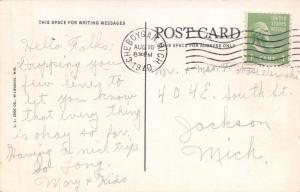 THIS SPACE FOR WRITING MESSAGES
POST CARD
THIS SPACE FOR ADDRESS ONLY
CHEBOYGAN, MICH.
AUG 16
8 30 PM
1940
Hello Folks:
Dropping you
few lines to
let you know
that every thing
is okay so far.
Having a nice trip
So Long.
Mary & Kids
Mr. & Mrs.
404 E. South St.
Jackson
Mich.
L. L. COOK CO., MILWAUKEE, WIS.